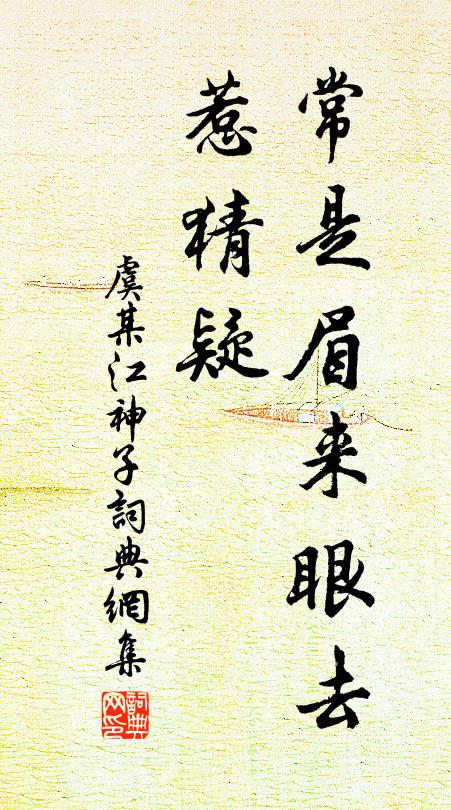 常是眉来眼去
惹猜疑
虞某江神子詞典網集
詞典网印